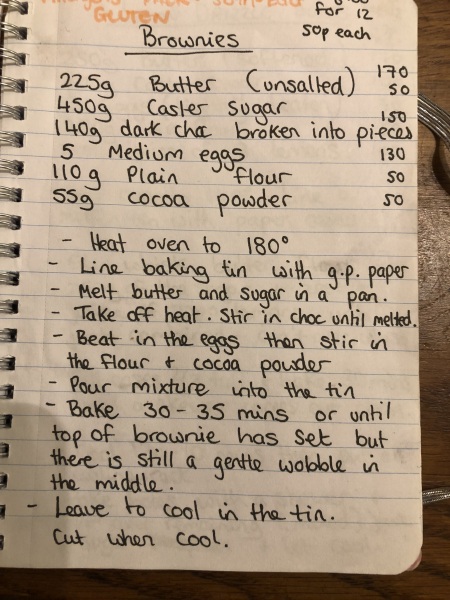 GLUTEN
for 12
50p each
Brownies
225g Butter (unsalted) 170
450g Caster Sugar 50
140g dark choc broken into pieces 150
5 Medium eggs 130
110g Plain flour 50
55g cocoa powder 50
- Heat oven to 180°
- Line baking tin with g.p. paper
- Melt butter and sugar in a pan.
- Take off heat. Stir in choc until melted.
- Beat in the eggs then stir in
the flour + cocoa powder
- Pour mixture into the tin
- Bake 30-35 mins or until
top of brownie has set but
there is still a gentle wobble in
the middle.
- Leave to cool in the tin.
Cut when cool.